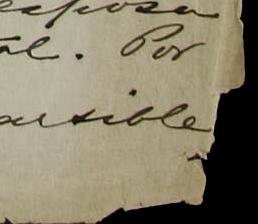 esposa
tal. Por
artible